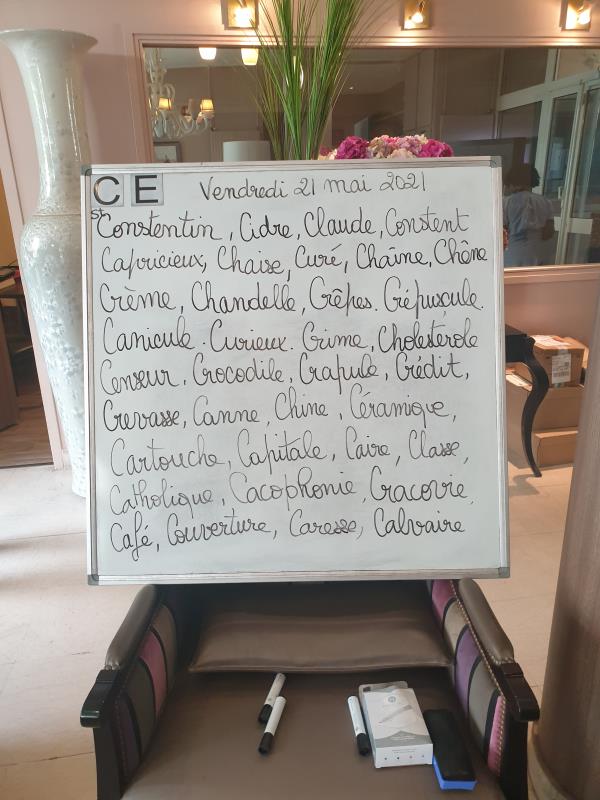 C E Vendredi 21 mai 2021
St Constentin, Cidre, Claude, Constent
Capricieux, Chaise, Curé, Chaîne, Chêne
Crème, Chandelle, Crêpes. Crépuscule.
Canicule. Curieux. Crime, Cholestérole
Censeur, Crocodile, Crapule, Crédit,
Crevasse, Canne, Chine, Céramique,
Cartouche, Capitale, Caire, Classe,
Catholique, Cacophonie, Cracovie,
Café, Couverture, Caresse, Calvaire